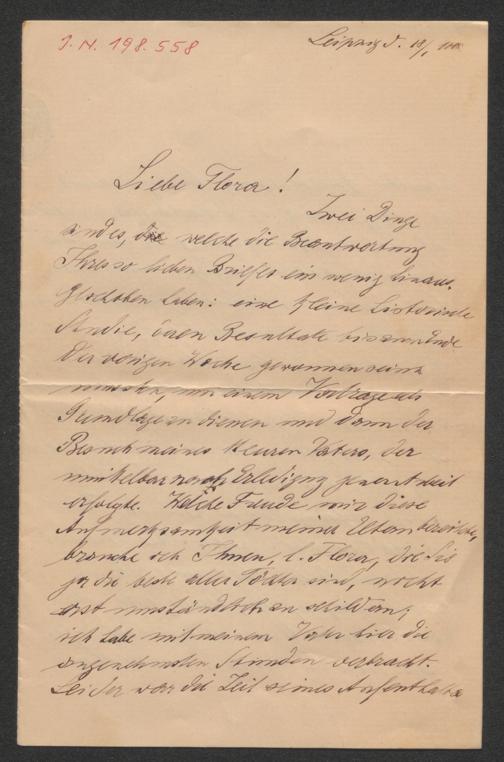 I. N. 198.558
Leipzig d.
Liebe Flora!
Zwei Dinge
sind es, die welche die Beantwortung
Ihres so lieben Briefes ein wenig hinaus-
geschoben haben: eine kleine historische
Studie, deren Resultate bis zum Ende
der vorigen Woche gewonnen sein
mussten, um einem Vortrage als
Grundlage zu dienen und dann der
Besuch meines theuren Vaters, der
unmittelbar nach Erledigung jener Arbeit
erfolgte. Welche Freude mir diese
Aufmerksamkeit meiner Eltern bereitete,
brauche ich Ihnen, l. Flora, die Sie
ja die beste aller Töchter sind, nicht
erst umständlich zu schildern;
ich habe mit meinem Vater hier die
angenehmsten Stunden verbracht.
Leider war die Zeit seines Aufenthaltes